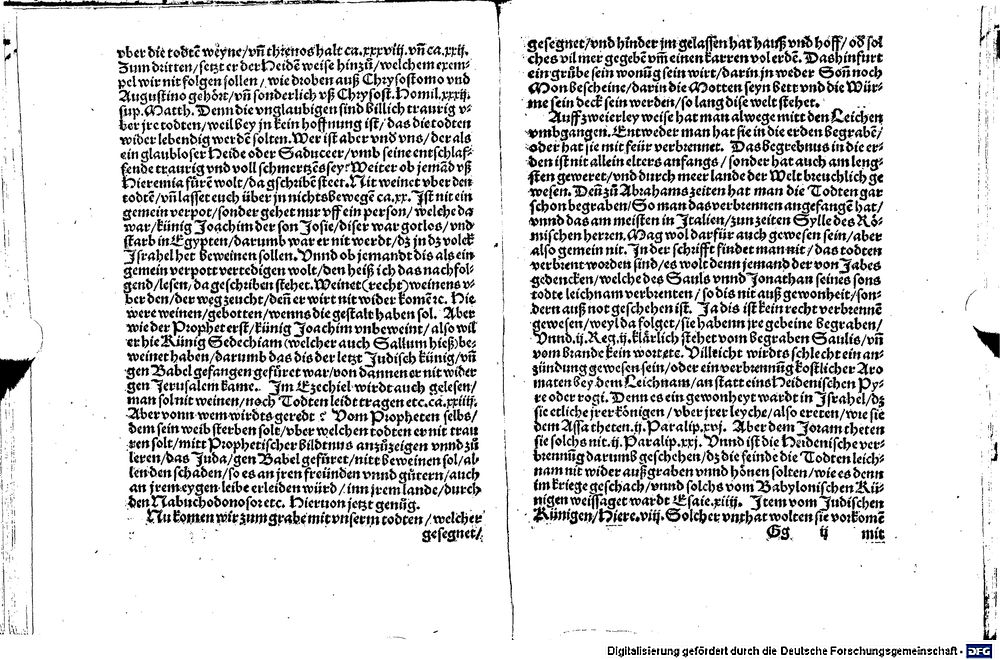 vber die todtē weyne/vñ thrēnos halt ca.xxxviij.vñ ca.xxij.
Zum dritten/setzt er der Heidē weise hinzů/welchem exem-
pel wir nit folgen sollen/wie droben auß Chrysostomo vnd
Augustino gehört/vñ sonderlich vß Chrysost. Homil.xxxij.
sup. Matth. Denn die vnglaubigen sind billich traurig v-
ber jre todten/weil bey jn kein hoffnung ist/das die todten
wider lebendig werdē solten. Wer ist aber vnd vns/der als
ein glaubloser Heide oder Saduceer/vmb seine entschlaf-
fende traurig vnd voll schmertzēs sey? Weiter ob jemād vß
Hieremia fürē wolt/da gschribē steet. Nit weinet vber den
todtē/vñ lasset euch über jn nichts bewegē ca.xx. Ist nit ein
gemein verpot/sonder gehet nur vff ein person/welche da
war/künig Joachim der son Josie/diser war gotlos/vnd
starb in Egypten/darumb war er nit werdt/dz jn dz volck
Israhel het beweinen sollen. Vnnd ob jemandt dis als ein
gemein verpott vertedigen wolt/den heiß ich das nachfol-
gend/lesen/da geschriben stehet. Weinet (recht) weinens v-
ber den/der weg zeucht/deñ er wirt nit wider komē ꝛc. Hie
were weinen/gebotten/wenns die gestalt haben sol. Aber
wie der Prophet erst/künig Joachim vnbeweint/also wil
er hie Künig Sedechiam (welcher auch Sallum hieß) be-
weinet haben/darumb das dis der letzt Judisch künig/vñ
gen Babel gefangen gefüret war/von dannen er nit wider
gen Jerusalem kame. Im Ezechiel wirdt auch gelesen/
man sol nit weinen/noch Todten leidt tragen etc. ca.xxiiij.
Aber vonn wem wirdts geredt? Vom Propheten selbs/
dem sein weib sterben solt/vber welchen todten er nit trau
ren solt/mitt Prophetischer bildtnus anzůzeigen vnnd zů
leren/das Juda/gen Babel gefüret/nitt beweinen sol/al-
len den schaden/so es an jren freünden vnnd gütern/auch
an jrem eygen leibe erleiden würd/inn jrem lande/durch
den Nabuchodonosor etc. Hieruon jetzt genůg.
Nu komen wir zum grabe mit vnserm todten/welcher
gesegnet/
gesegnet/vnd hinder jm gelassen hat hauß vnd hoff/oď sol
ches vil mer gegebē vm̄ einen karren vol erdē. Das hinfurt
ein grůbe sein wonůg sein wirt/darin jn weder Soñ noch
Mon bescheine/darin die Motten seyn bett vnd die Wür-
me sein deck sein werden/so lang dise welt stehet.
Auff zweierley weise hat man alwege mitt den Leichen
vmbgangen. Entweder man hat sie in die erden begrabē/
oder hat sie mit feür verbrennet. Das begrebnus in die er-
den ist nit allein elters anfangs/sonder hat auch am leng-
sten geweret/vnd durch mer lande der Welt breuchlich ge
wesen. Deñ zů Abrahams zeiten hat man die Todten gar
schon begraben/So man das verbrennen angefangē hat/
vnnd das am meisten in Italien/zun zeiten Sylle des Rö-
mischen herren. Mag wol darfür auch gewesen sein/aber
also gemein nit. In der schrifft findet man nit/das todten
verbrent worden sind/es wolt denn jemand der von Jabes
gedencken/welche des Sauls vnnd Jonathan seines sons
todte leichnam verbrenten/so dis nit auß gewonheit/son-
dern auß not geschehen ist. Ja dis ist kein recht verbrennē
gewesen/weyl da folget/sie habenn jre gebeine begraben/
Vnnd.ij.Reg.ij.klärlich stehet vom begraben Saulis/vñ
vom brande kein wort etc. Villeicht wirdts schlecht ein an-
zündung gewesen sein/oder ein verbrennůg kostlicher Aro
maten bey dem Leichnam/an statt eins Heidenischen Py-
re oder rogi. Denn es ein gewonheyt wardt in Israhel/dz
sie etliche jrer königen/vber jrer leyche/also ereten/wie sie
dem Assa theten.ij.Paralip.xvj. Aber dem Joram theten
sie solchs nit.ij.Paralip.xxj. Vnnd ist die Heidenische ver-
brennůg darumb geschehen/dz die feinde die Todten leich-
nam nit wider außgraben vnnd hönen solten/wie es denn
im kriege geschach/vnnd solchs vom Babylonischen Kü-
nigen weissaget wardt Esaie.xiiij. Item vom Judischen
Künigen/Hiere.viij. Solcher vnthat wolten sie vorkomē
Gg ij mit
Digitalisierung gefördert durch die Deutsche Forschungsgemeinschaft - DFG